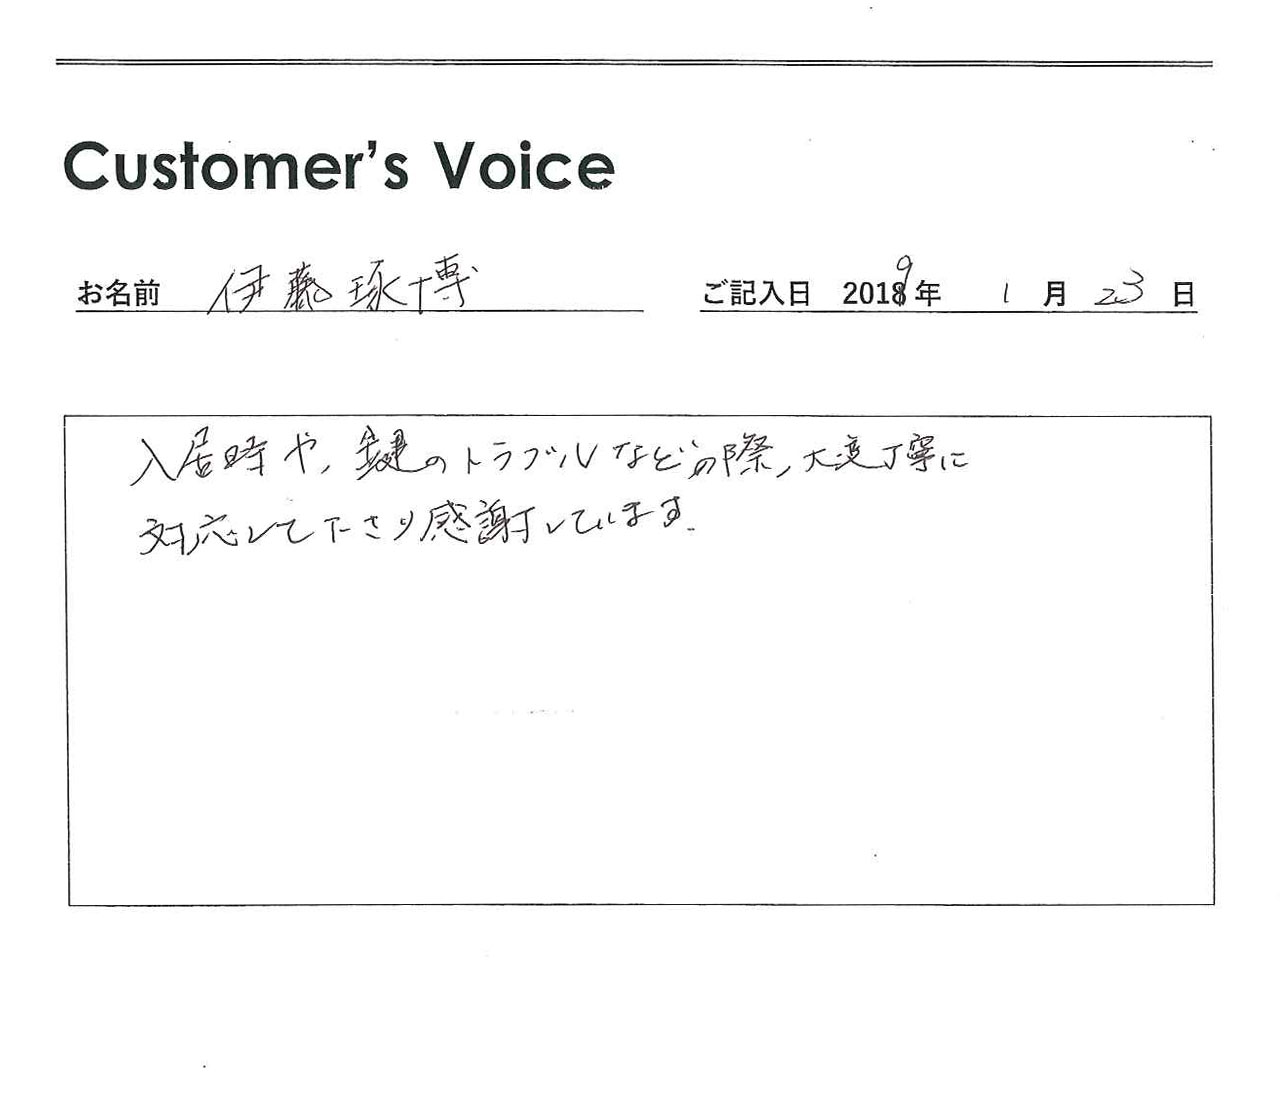 Customer's Voice
お名前 伊藤琢博
ご記入日 2019年 1月 23日
入居時や、鍵のトラブルなどの際、大変丁寧に
対応して下さり感謝しています。